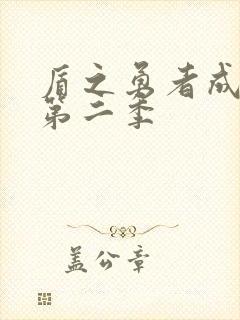 盾之勇者成
第二季
盖公章